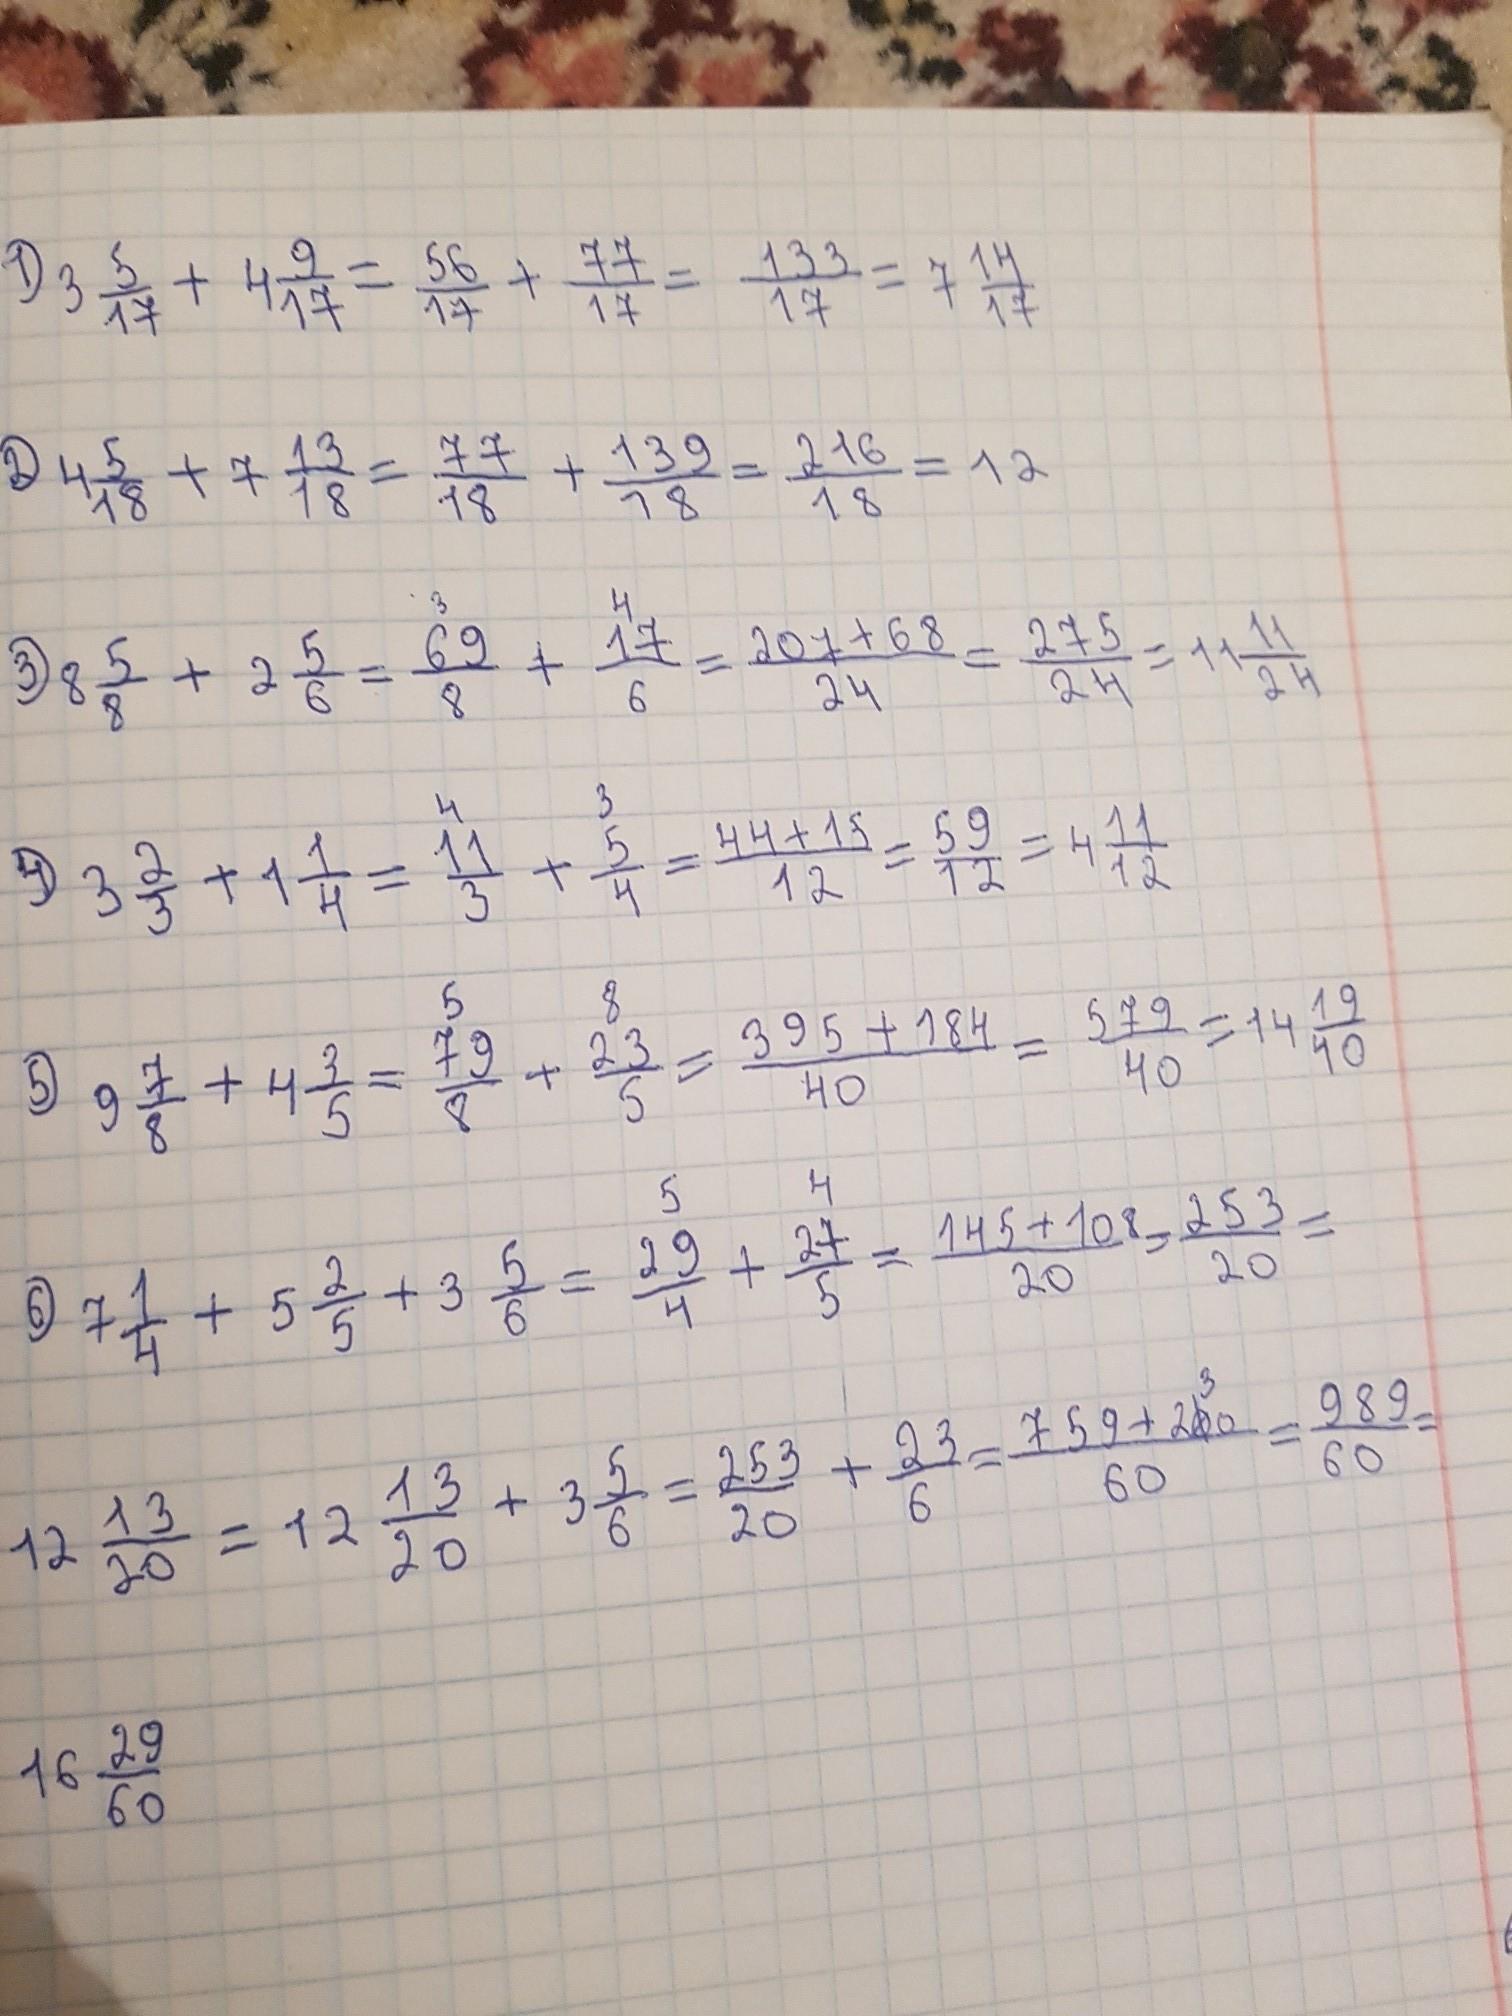 1) 3 5/17 + 4 9/17 = 56/17 + 77/17 = 133/17 = 7 14/17
2) 4 5/18 + 7 13/18 = 77/18 + 139/18 = 216/18 = 12
3 4
3) 8 5/8 + 2 5/6 = 69/8 + 17/6 = 207+68/24 = 275/24 = 11 11/24
4 3
4) 3 2/3 + 1 1/4 = 11/3 + 5/4 = 44+15/12 = 59/12 = 4 11/12
5 8
5) 9 7/8 + 4 3/5 = 79/8 + 23/5 = 395+184/40 = 579/40 = 14 19/40
5 4
6) 7 1/4 + 5 2/5 + 3 5/6 = 29/4 + 27/5 = 145+108/20 = 253/20 =
12 13/20 = 12 13/20 + 3 5/6 = 253/20 + 23/6 = 759+230/60 = 989/60 =
16 29/60